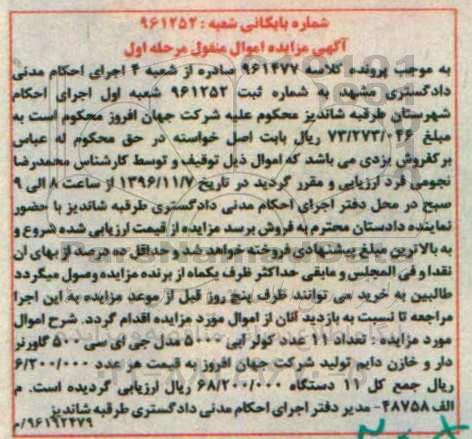 شماره بایگانی شعبه : ۹۶۱۲۵۲
آگهی مزایده اموال منقول مرحله اول
به موجب پرونده کلاسه ۹۶۱۴۷۷ صادره از شعبه ۴ اجرای احکام مدنی
دادگستری مشهد به شماره ثبت ۹۶۱۲۵۲ شعبه اول اجرای احکام
شهرستان طرقبه شاندیز محکوم علیه شرکت جهان افروز محکوم است به
مبلغ ۷۳/۲۷۳/۰۴۶ ریال بابت اصل خواسته در حق محکوم له عباس
برکفروش یزدی می باشد که اموال ذیل توقیف و توسط کارشناس محمدرضا
نجومی فرد ارزیابی و مقرر گردید در تاریخ ۱۳۹۶/۱۱/۷ از ساعت ۸ الی ۹
صبح در محل دفتر اجرای احکام مدنی دادگستری طرقبه شاندیز با حضور
نماینده دادستان محترم به فروش برسد مزایده از قیمت ارزیابی شده شروع و
به بالاترین مبلغ پیشنهادی فروخته خواهد شد و حداقل ده درصد از بهای ان
نقدا و فی المجلس و مابقی حداکثر ظرف یکماه از برنده مزایده وصول میگردد
طالبین به خرید می توانند ظرف پنج روز قبل از موعد مزایده به این اجرا
مراجعه تا نسبت به بازدید آنان از اموال مورد مزایده اقدام گردد. شرح اموال
مورد مزایده : تعداد ۱۱ عدد کولر آبی ۵۰۰۰ مدل جی ای سی ۵۰۰ گاورنر
دار و خازن دایم تولید شرکت جهان افروز به قیمت هر عدد ۶/۲۰۰/۰۰۰
ریال جمع کل ۱۱ دستگاه ۶۸/۲۰۰/۰۰۰ ریال ارزیابی گردیده است. م
الف ۴۸۷۵۸- مدیر دفتر اجرای احکام مدنی دادگستری طرقبه شاندیز
۹۶۱۹۲۴۷۹/م